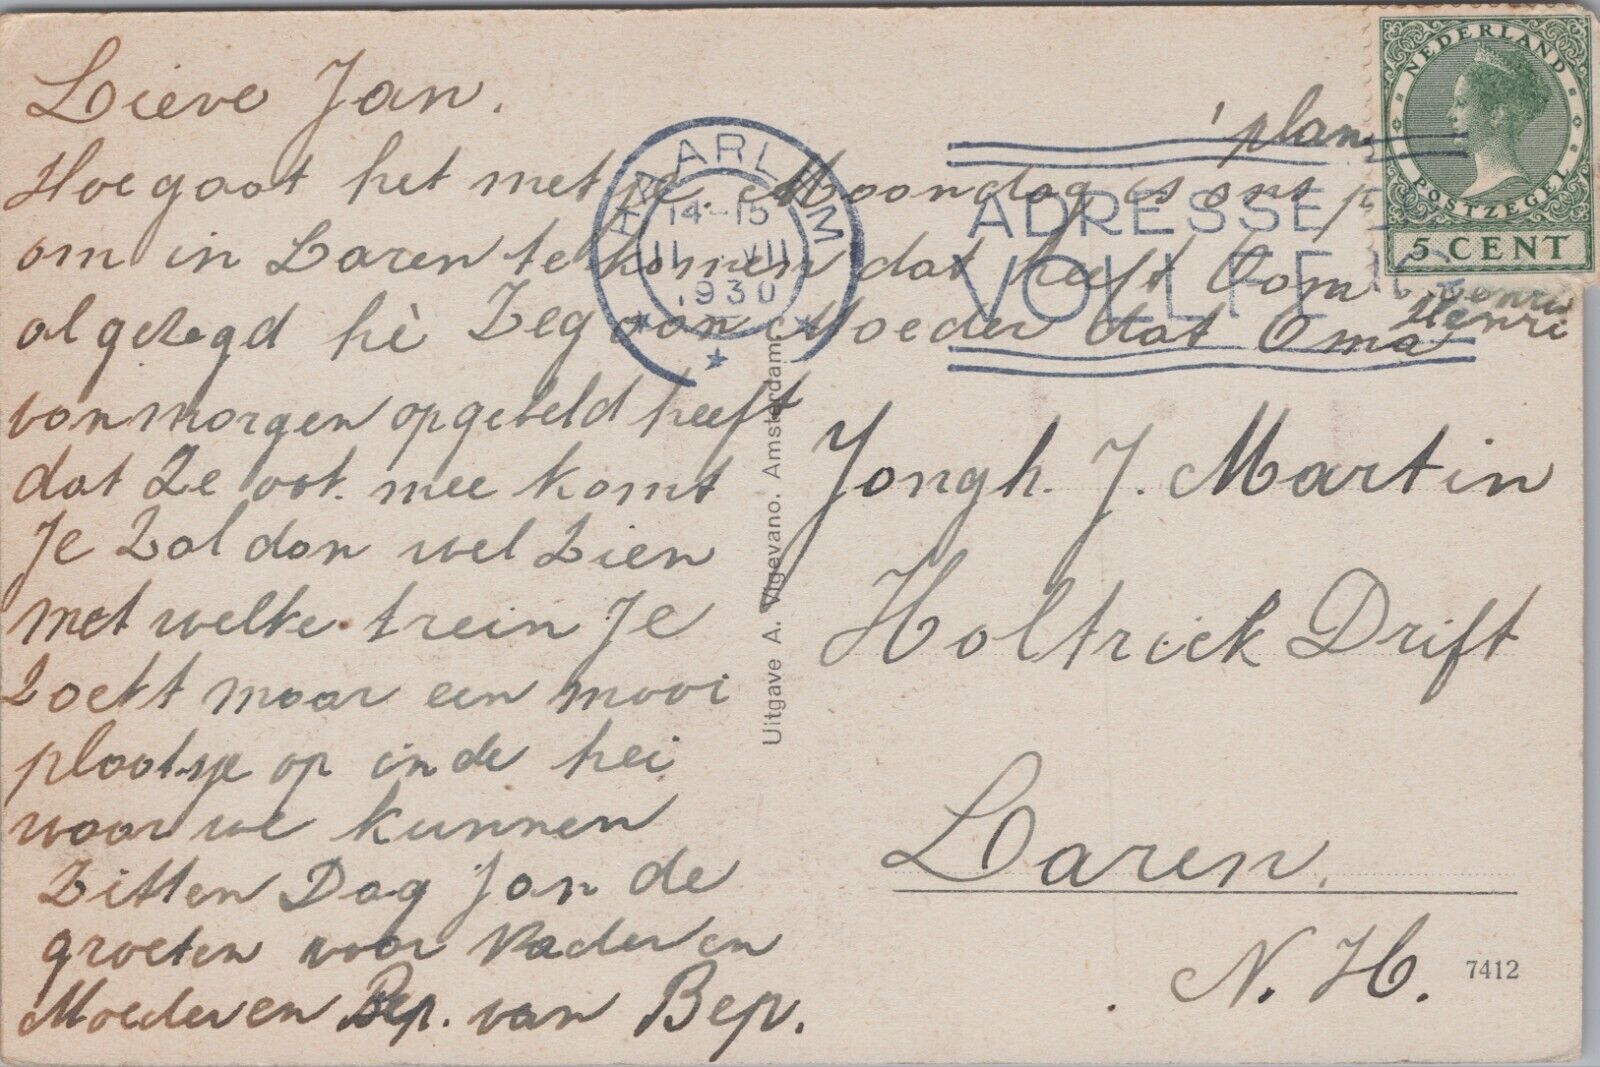 Lieve Jan.
Hoe gaat het met je. Maandag is ons
'plan
om in Laren te komen dat heeft Oom Henri
al gezegd hè Zeg aan Moeder dat Oma
van morgen opgebeld heeft
dat Ze oot. mee komt
Je Zal dan wel Zien
met welke trein Je
Zoekt maar een mooi
plaatsje op in de hei
waar we kunnen
Zitten Dag Jan de
groeten voor Vader en
Moeder en Bep. van Bep.
HAARLEM
14-15
11 VII
1930
ADRESSEER
VOLLEDIG
NEDERLAND
POSTZEGEL
5 CENT
Uitgave A. Vigevano. Amsterdam.
Jongh. J. Martin
Holtrick Drift
Laren.
N. H.
7412